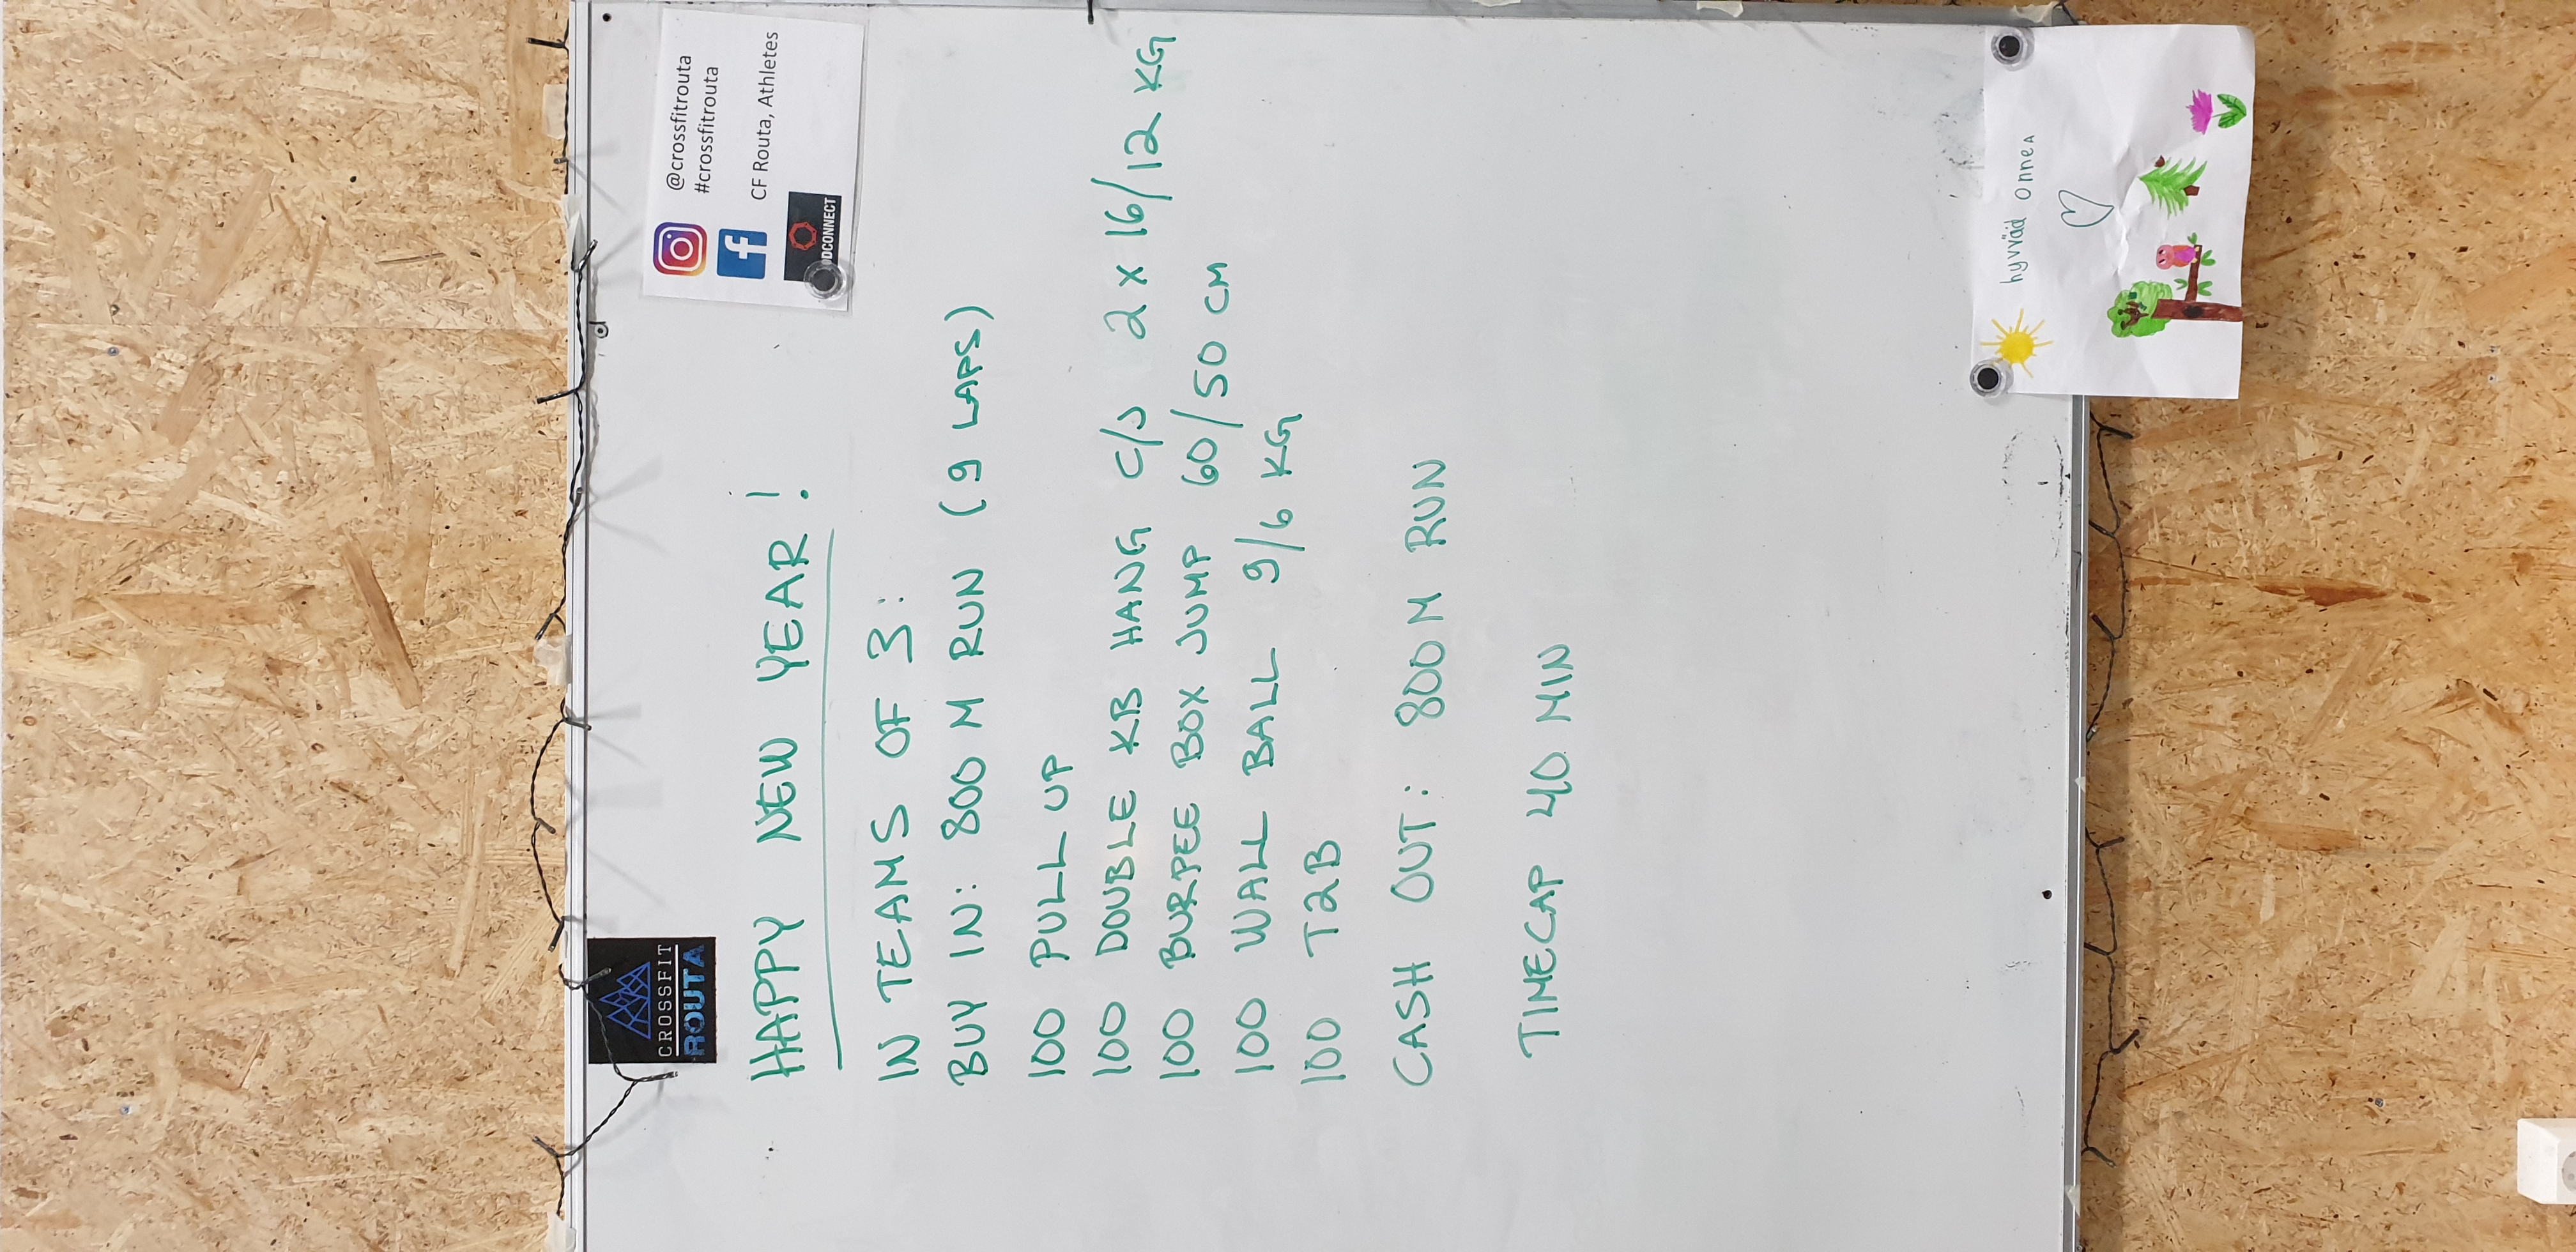 CROSSFIT
ROUTA
@crossfitrouta
#crossfitrouta
CF Routa, Athletes
DCONNECT
HAPPY NEW YEAR!
IN TEAMS OF 3:
BUY IN: 800 M RUN (9 LAPS)
100 PULL UP
100 DOUBLE KB HANG C/J 2 x 16/12 KG
100 BURPEE BOX JUMP 60/50 CM
100 WALL BALL 9/6 KG
100 T2B
CASH OUT: 800M RUN
TIMECAP 40 MIN
hyvvää onnea